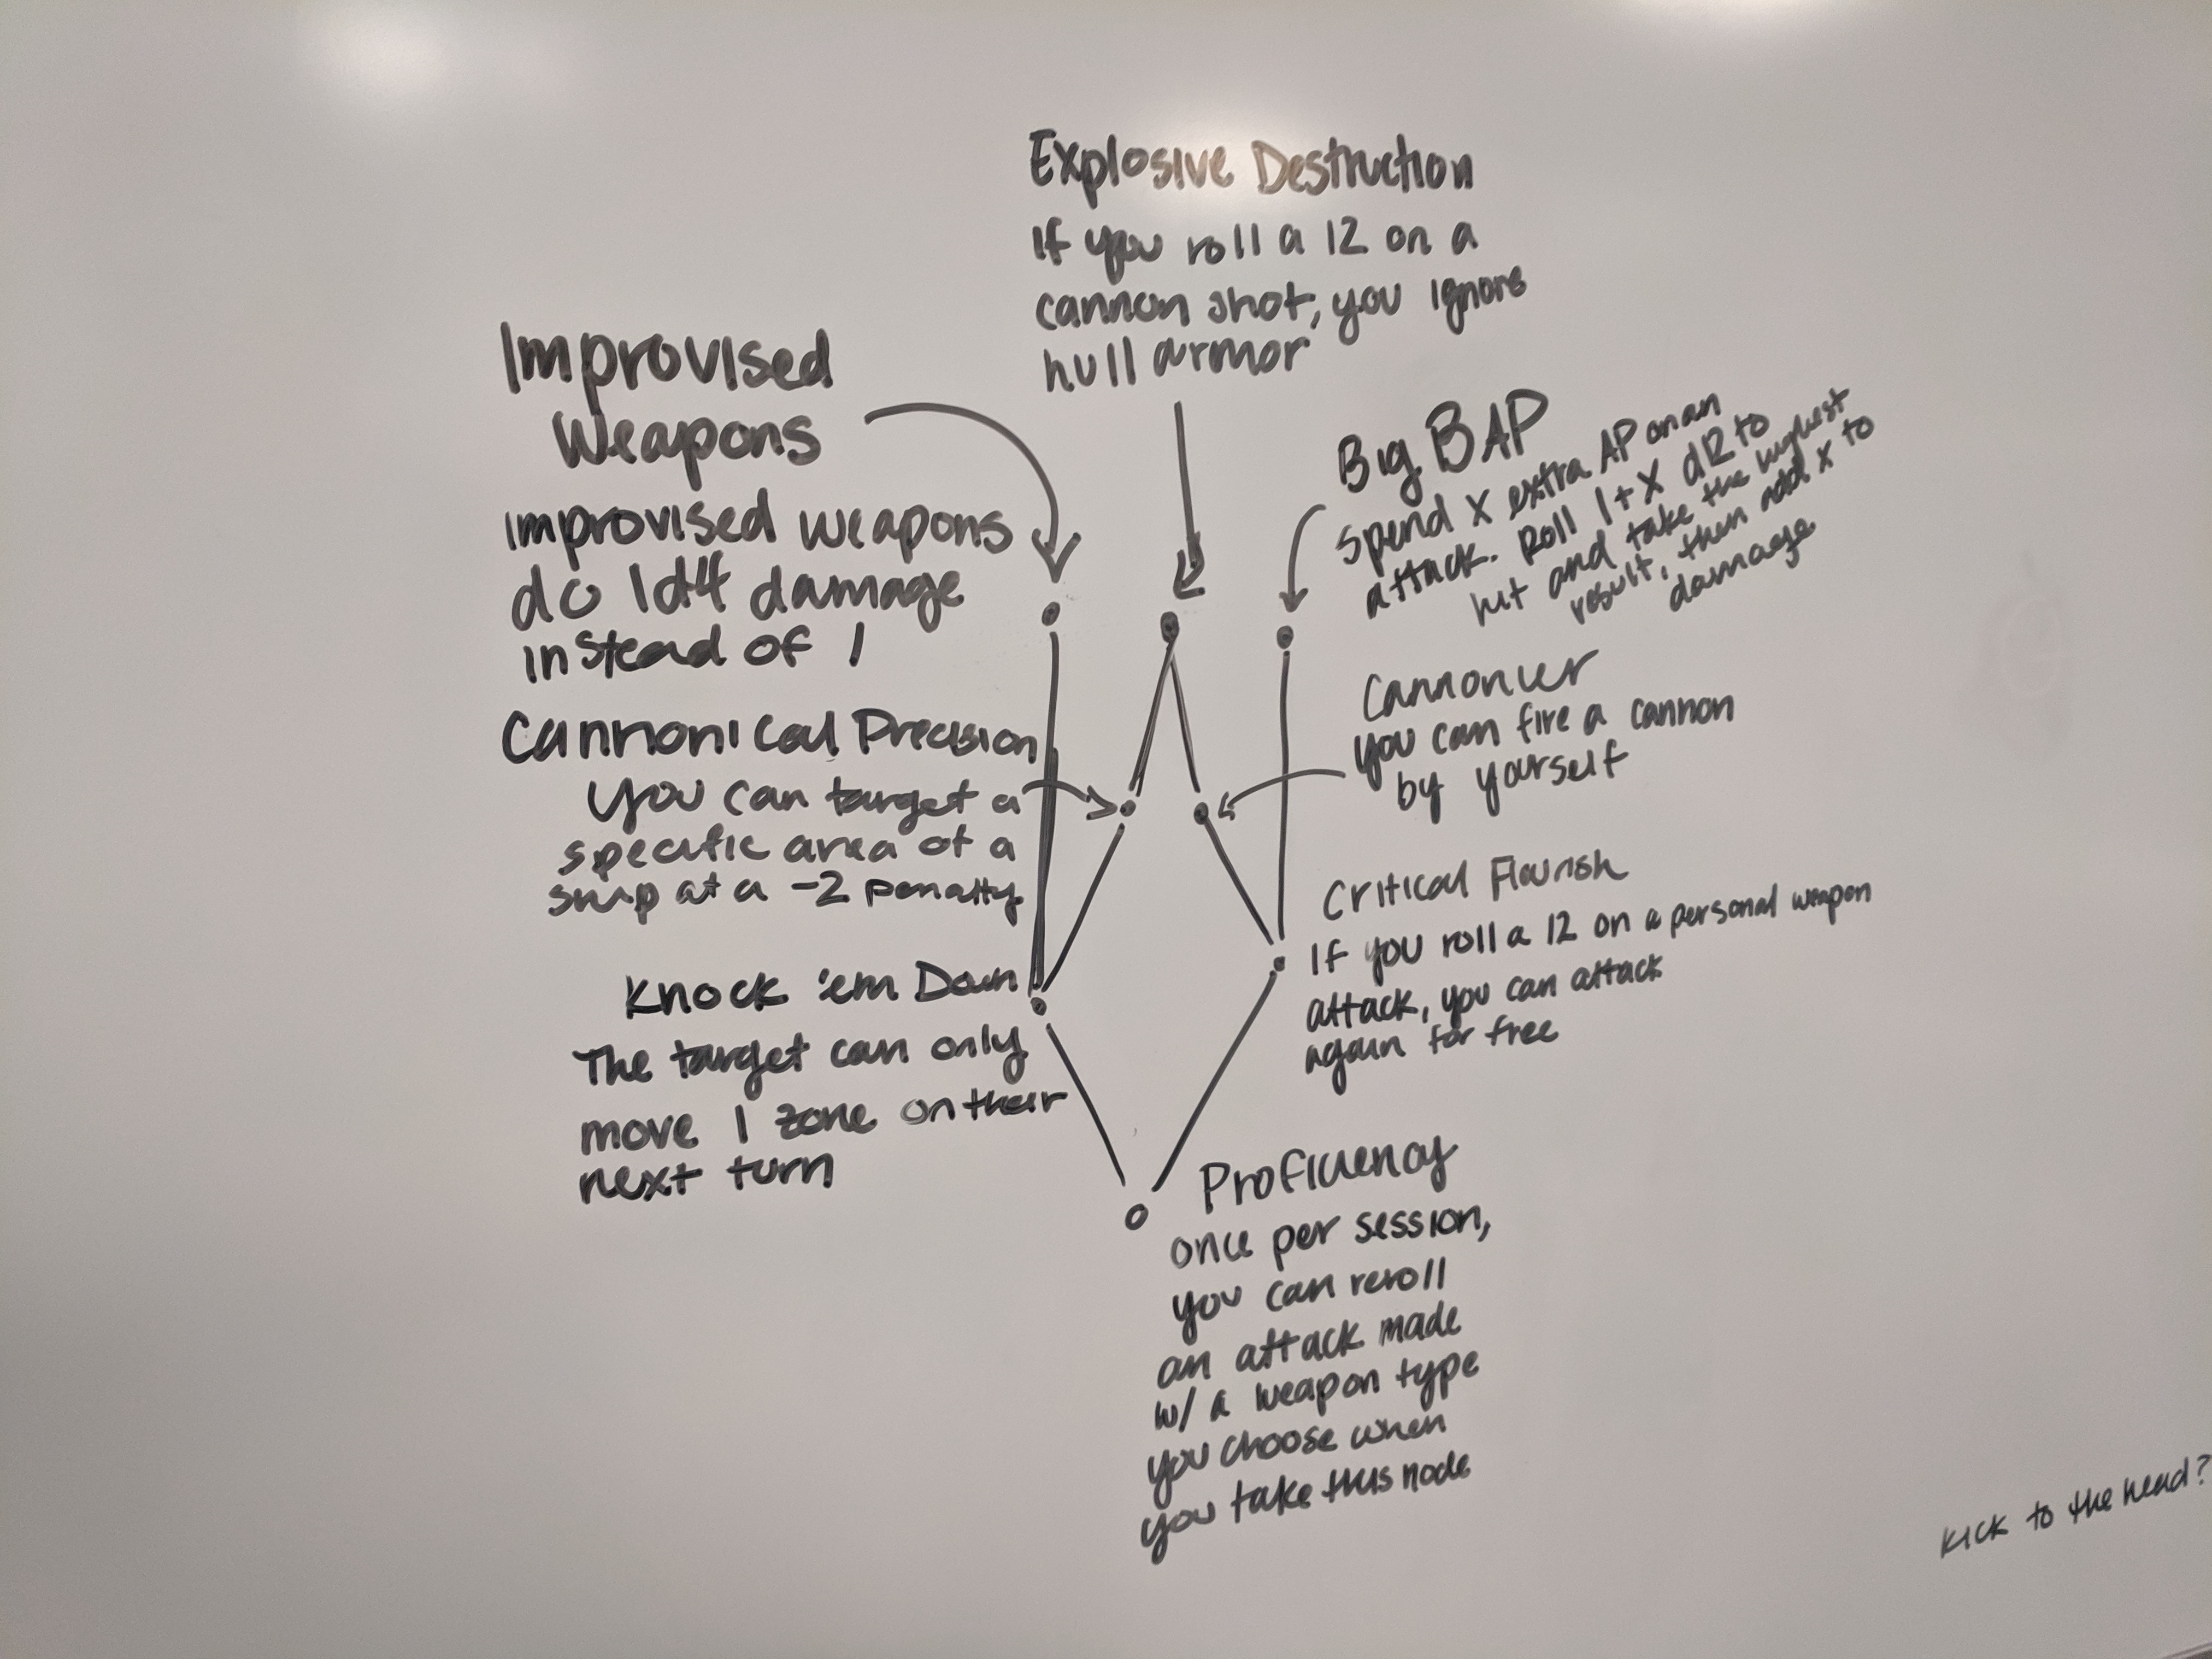 Explosive Destruction
If you roll a 12 on a
cannon shot, you ignore
hull armor
Improvised
Weapons
improvised weapons
do 1d4 damage
instead of 1
Big BAP
Spend X extra AP on an
attack. Roll 1+X d12 to
hit and take the highest
result, then add X to
damage
Cannonical Precision
you can target a
specific area of a
ship at a -2 penalty
Cannonier
you can fire a cannon
by yourself
Critical Flourish
If you roll a 12 on a personal weapon
attack, you can attack
again for free
Knock 'em Down
The target can only
move 1 zone on their
next turn
Proficiency
once per session,
you can reroll
an attack made
w/ a weapon type
you choose when
you take this node
kick to the head?